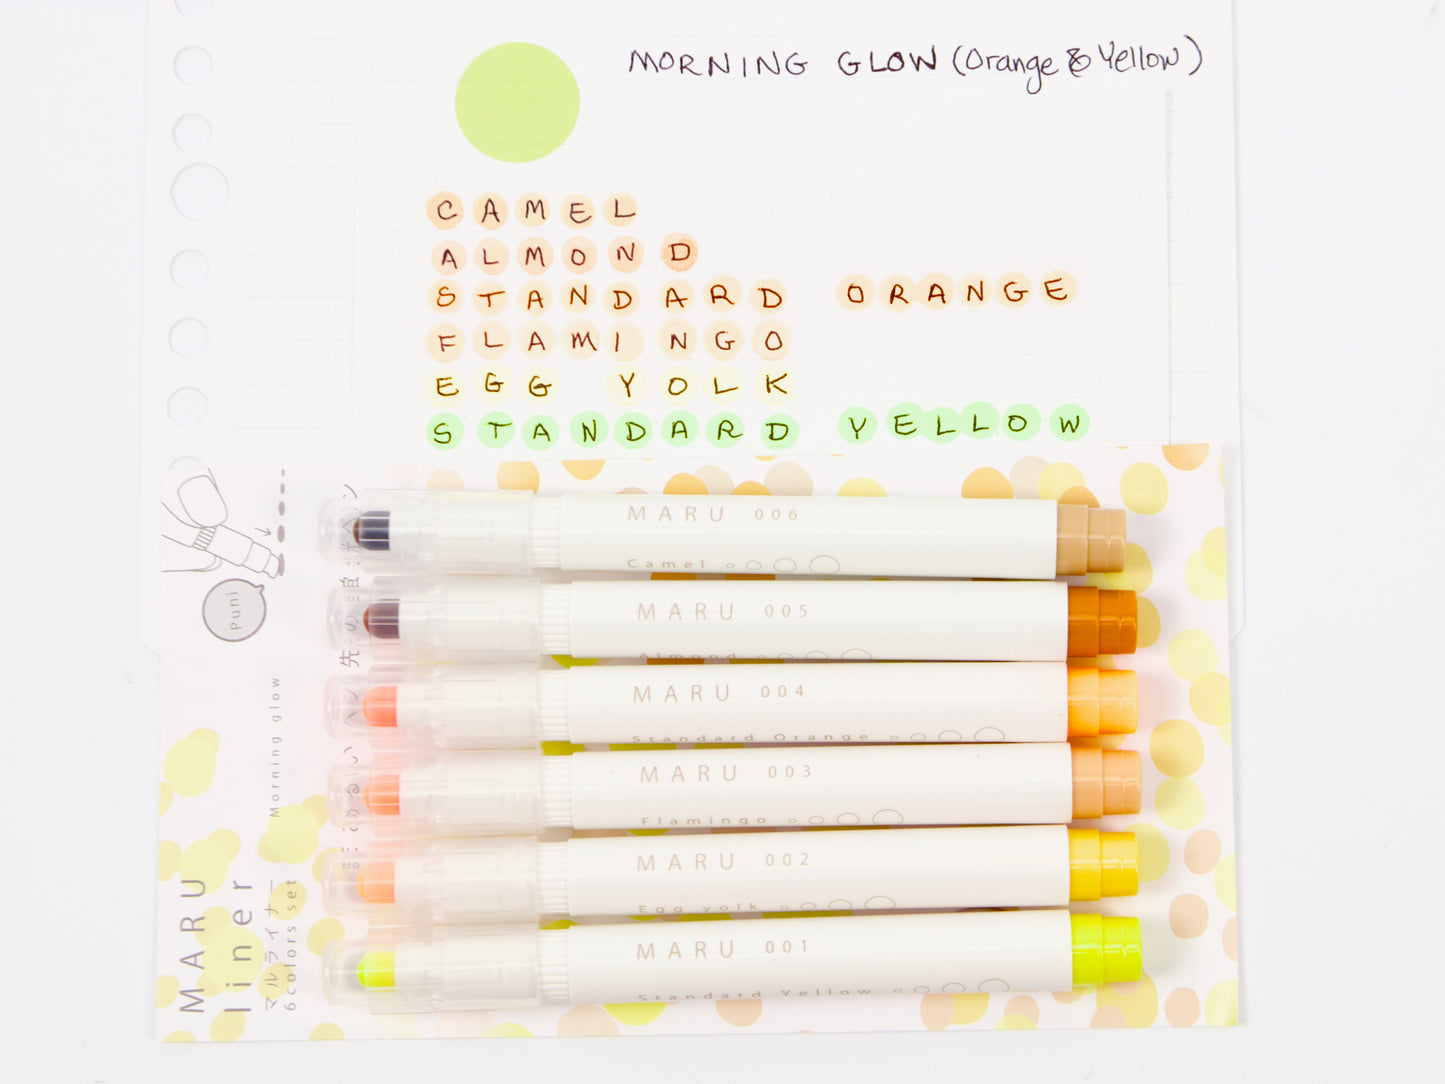 MORNING GLOW (Orange & Yellow)
CAMEL
ALMOND
STANDARD ORANGE
FLAMINGO
EGG YOLK
STANDARD YELLOW
MARU 006
Camel
MARU 005
Almond
MARU 004
Standard Orange
MARU 003
Flamingo
MARU 002
Egg yolk
MARU 001
Standard Yellow
Puni
Morning glow
MARU
liner
マルライナー
6colors set